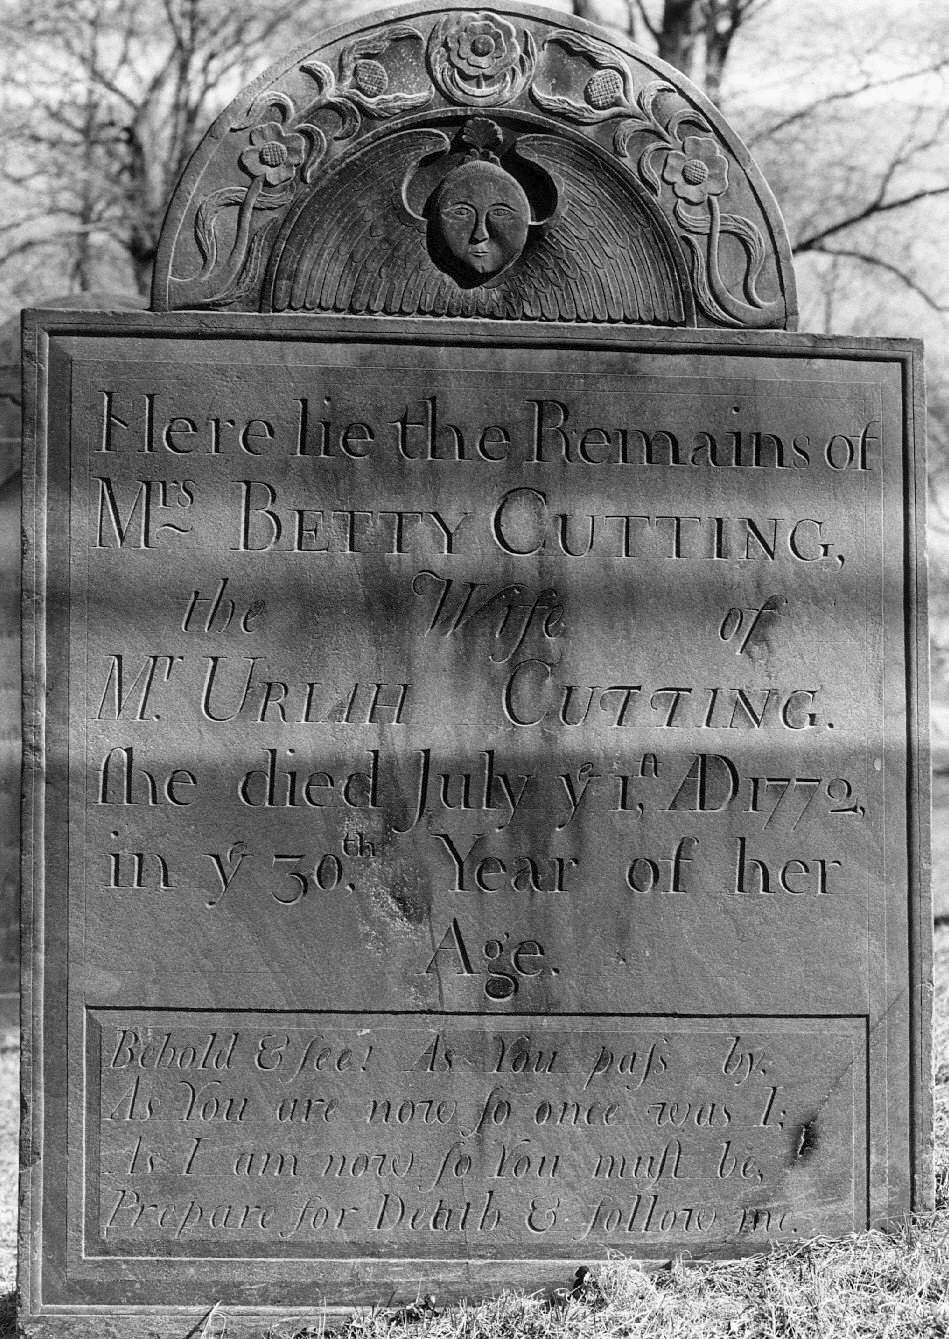 Here lie the Remains of
Mrs BETTY CUTTING,
the Wife of
Mr URIAH CUTTING.
ſhe died July ye 1ſt, AD1772,
in ye 30th. Year of her
Age.
Behold & ſee! As You paſs by,
As You are now ſo once was I;
As I am now ſo You muſt be,
Prepare for Death & follow me.